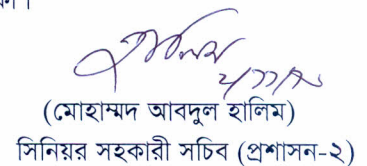 (মোহাম্মদ আবদুল হালিম)
সিনিয়র সহকারী সচিব (প্রশাসন-২)